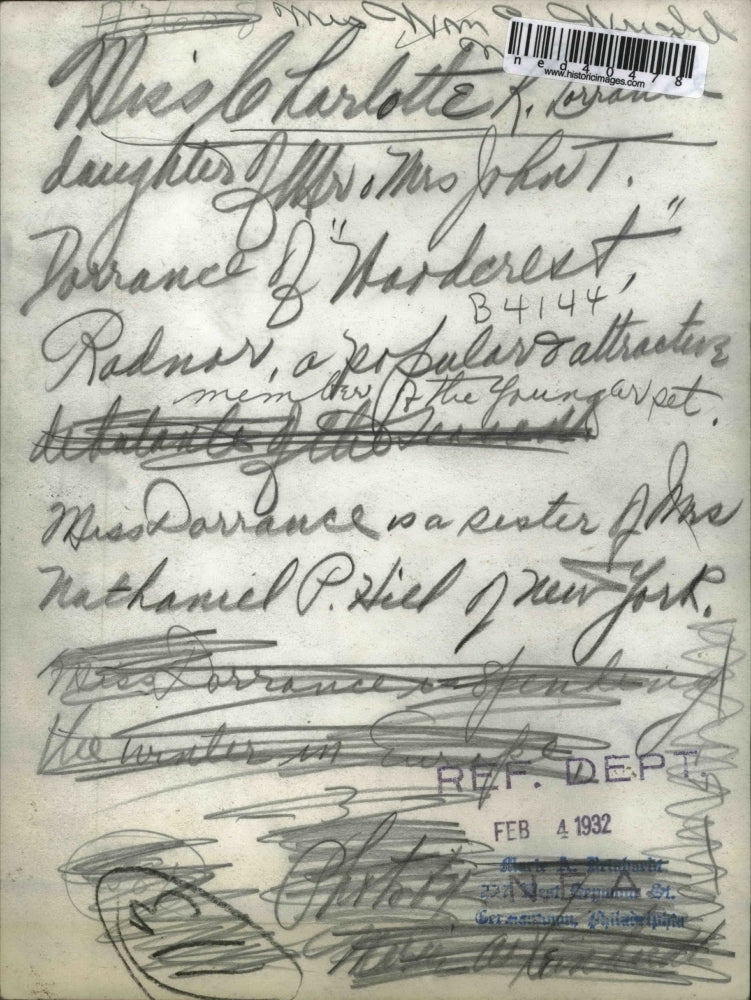 Mrs Wm
ned40478
www.historicimages.com
Miss Charlotte K. Dorrance
daughter of Mr. Mrs John T.
Dorrance of "Woodcrest,"
B4144
Radnor, a popular & attractive
member of the younger set.
debutante of the season
Miss Dorrance is a sister of Mrs
Nathaniel P. Hill of New York.
Miss Dorrance is spending
the winter in Europe
REF. DEPT.
FEB 4 1932
Photo by
Germantown, Philadelphia